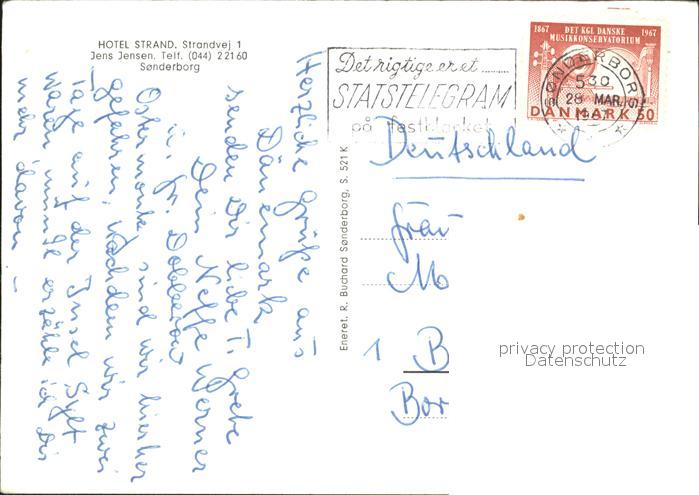 HOTEL STRAND. Strandvej 1
Jens Jensen. Telf. (044) 2 21 60
Sønderborg
Herzliche Grüße aus
Dänemark
senden Dir liebe T. Grete
Dein Neffe Werner
u. Fr.
Ostermontag sind wir hierher
gefahren, nachdem wir zwei
Tage auf der Insel Sylt
waren mündl. erzähle ich Dir
mehr davon –
Eneret. R. Buchard Sønderborg, S. 521 K
Det rigtige er et........
STATSTELEGRAM
på festblanket
1867 DET KGL DANSKE 1967
MUSIKKONSERVATORIUM
DANMARK 50
SØNDERBORG
530
28 MAR.
Deutschland
Frau
M
1 B
Bor
privacy protection
Datenschutz